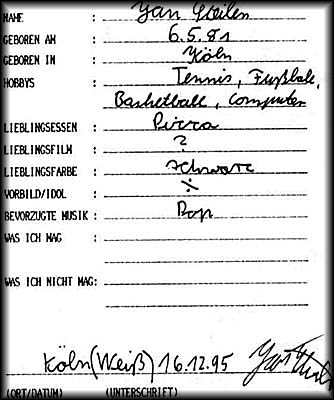 NAME : Jan
GEBOREN AM : 6.5.81
GEBOREN IN : Köln
HOBBYS : Tennis, Fußball,
Basketball, Computer
LIEBLINGSESSEN : Pizza
LIEBLINGSFILM : ?
LIEBLINGSFARBE : schwarz
VORBILD/IDOL : ·/·
BEVORZUGTE MUSIK : Pop
WAS ICH MAG :
WAS ICH NICHT MAG:
Köln (Weiß) 16.12.95
(ORT/DATUM) (UNTERSCHRIFT)